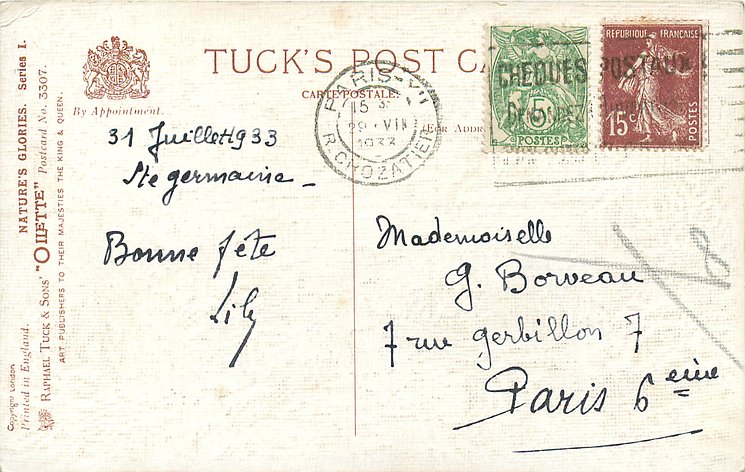 TUCK'S POST CA
CARTE POSTALE.
(FOR ADDR
By Appointment.
NATURE'S GLORIES. Series I.
RAPHAEL TUCK & SONS' "OILETTE" Postcard No. 3307.
ART PUBLISHERS TO THEIR MAJESTIES THE KING & QUEEN.
Copyright London
Printed in England.
PARIS-XII
15
29 · VII
1933
R. CROZATIER
CHEQUES POSTAUX
5
POSTES
REPUBLIQUE FRANÇAISE
15c
POSTES
31 Juillet 1933
Ste germaine -
Bonne fête
Lily
Mademoiselle
G. Borveau
7 rue Gerbillon 7
Paris 6eme
8